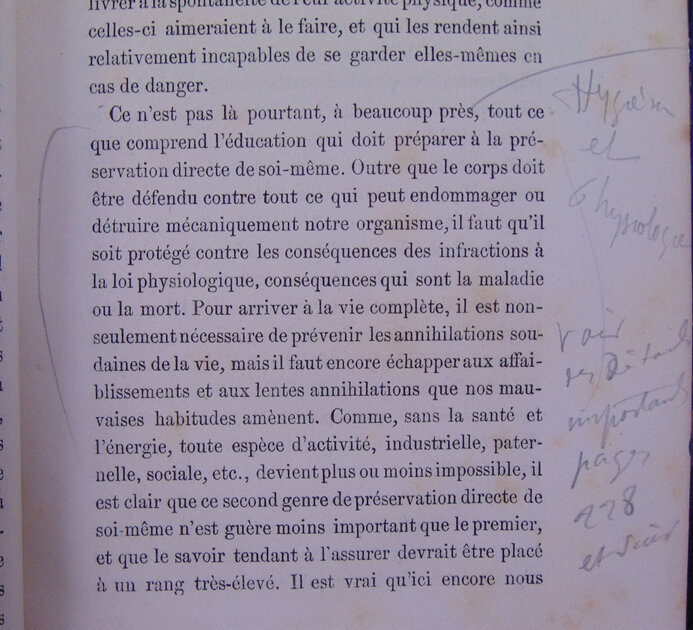 livrer à la spontanéité de leur activité physique, comme
celles-ci aimeraient à le faire, et qui les rendent ainsi
relativement incapables de se garder elles-mêmes en
cas de danger.
Ce n'est pas là pourtant, à beaucoup près, tout ce
que comprend l'éducation qui doit préparer à la pré-
servation directe de soi-même. Outre que le corps doit
être défendu contre tout ce qui peut endommager ou
détruire mécaniquement notre organisme, il faut qu'il
soit protégé contre les conséquences des infractions à
la loi physiologique, conséquences qui sont la maladie
ou la mort. Pour arriver à la vie complète, il est non-
seulement nécessaire de prévenir les annihilations sou-
daines de la vie, mais il faut encore échapper aux affai-
blissements et aux lentes annihilations que nos mau-
vaises habitudes amènent. Comme, sans la santé et
l'énergie, toute espèce d'activité, industrielle, pater-
nelle, sociale, etc., devient plus ou moins impossible, il
est clair que ce second genre de préservation directe de
soi-même n'est guère moins important que le premier,
et que le savoir tendant à l'assurer devrait être placé
à un rang très-élevé. Il est vrai qu'ici encore nous
Hygiène
et
Physiologie
voir
Détails
importants
pages
228
et